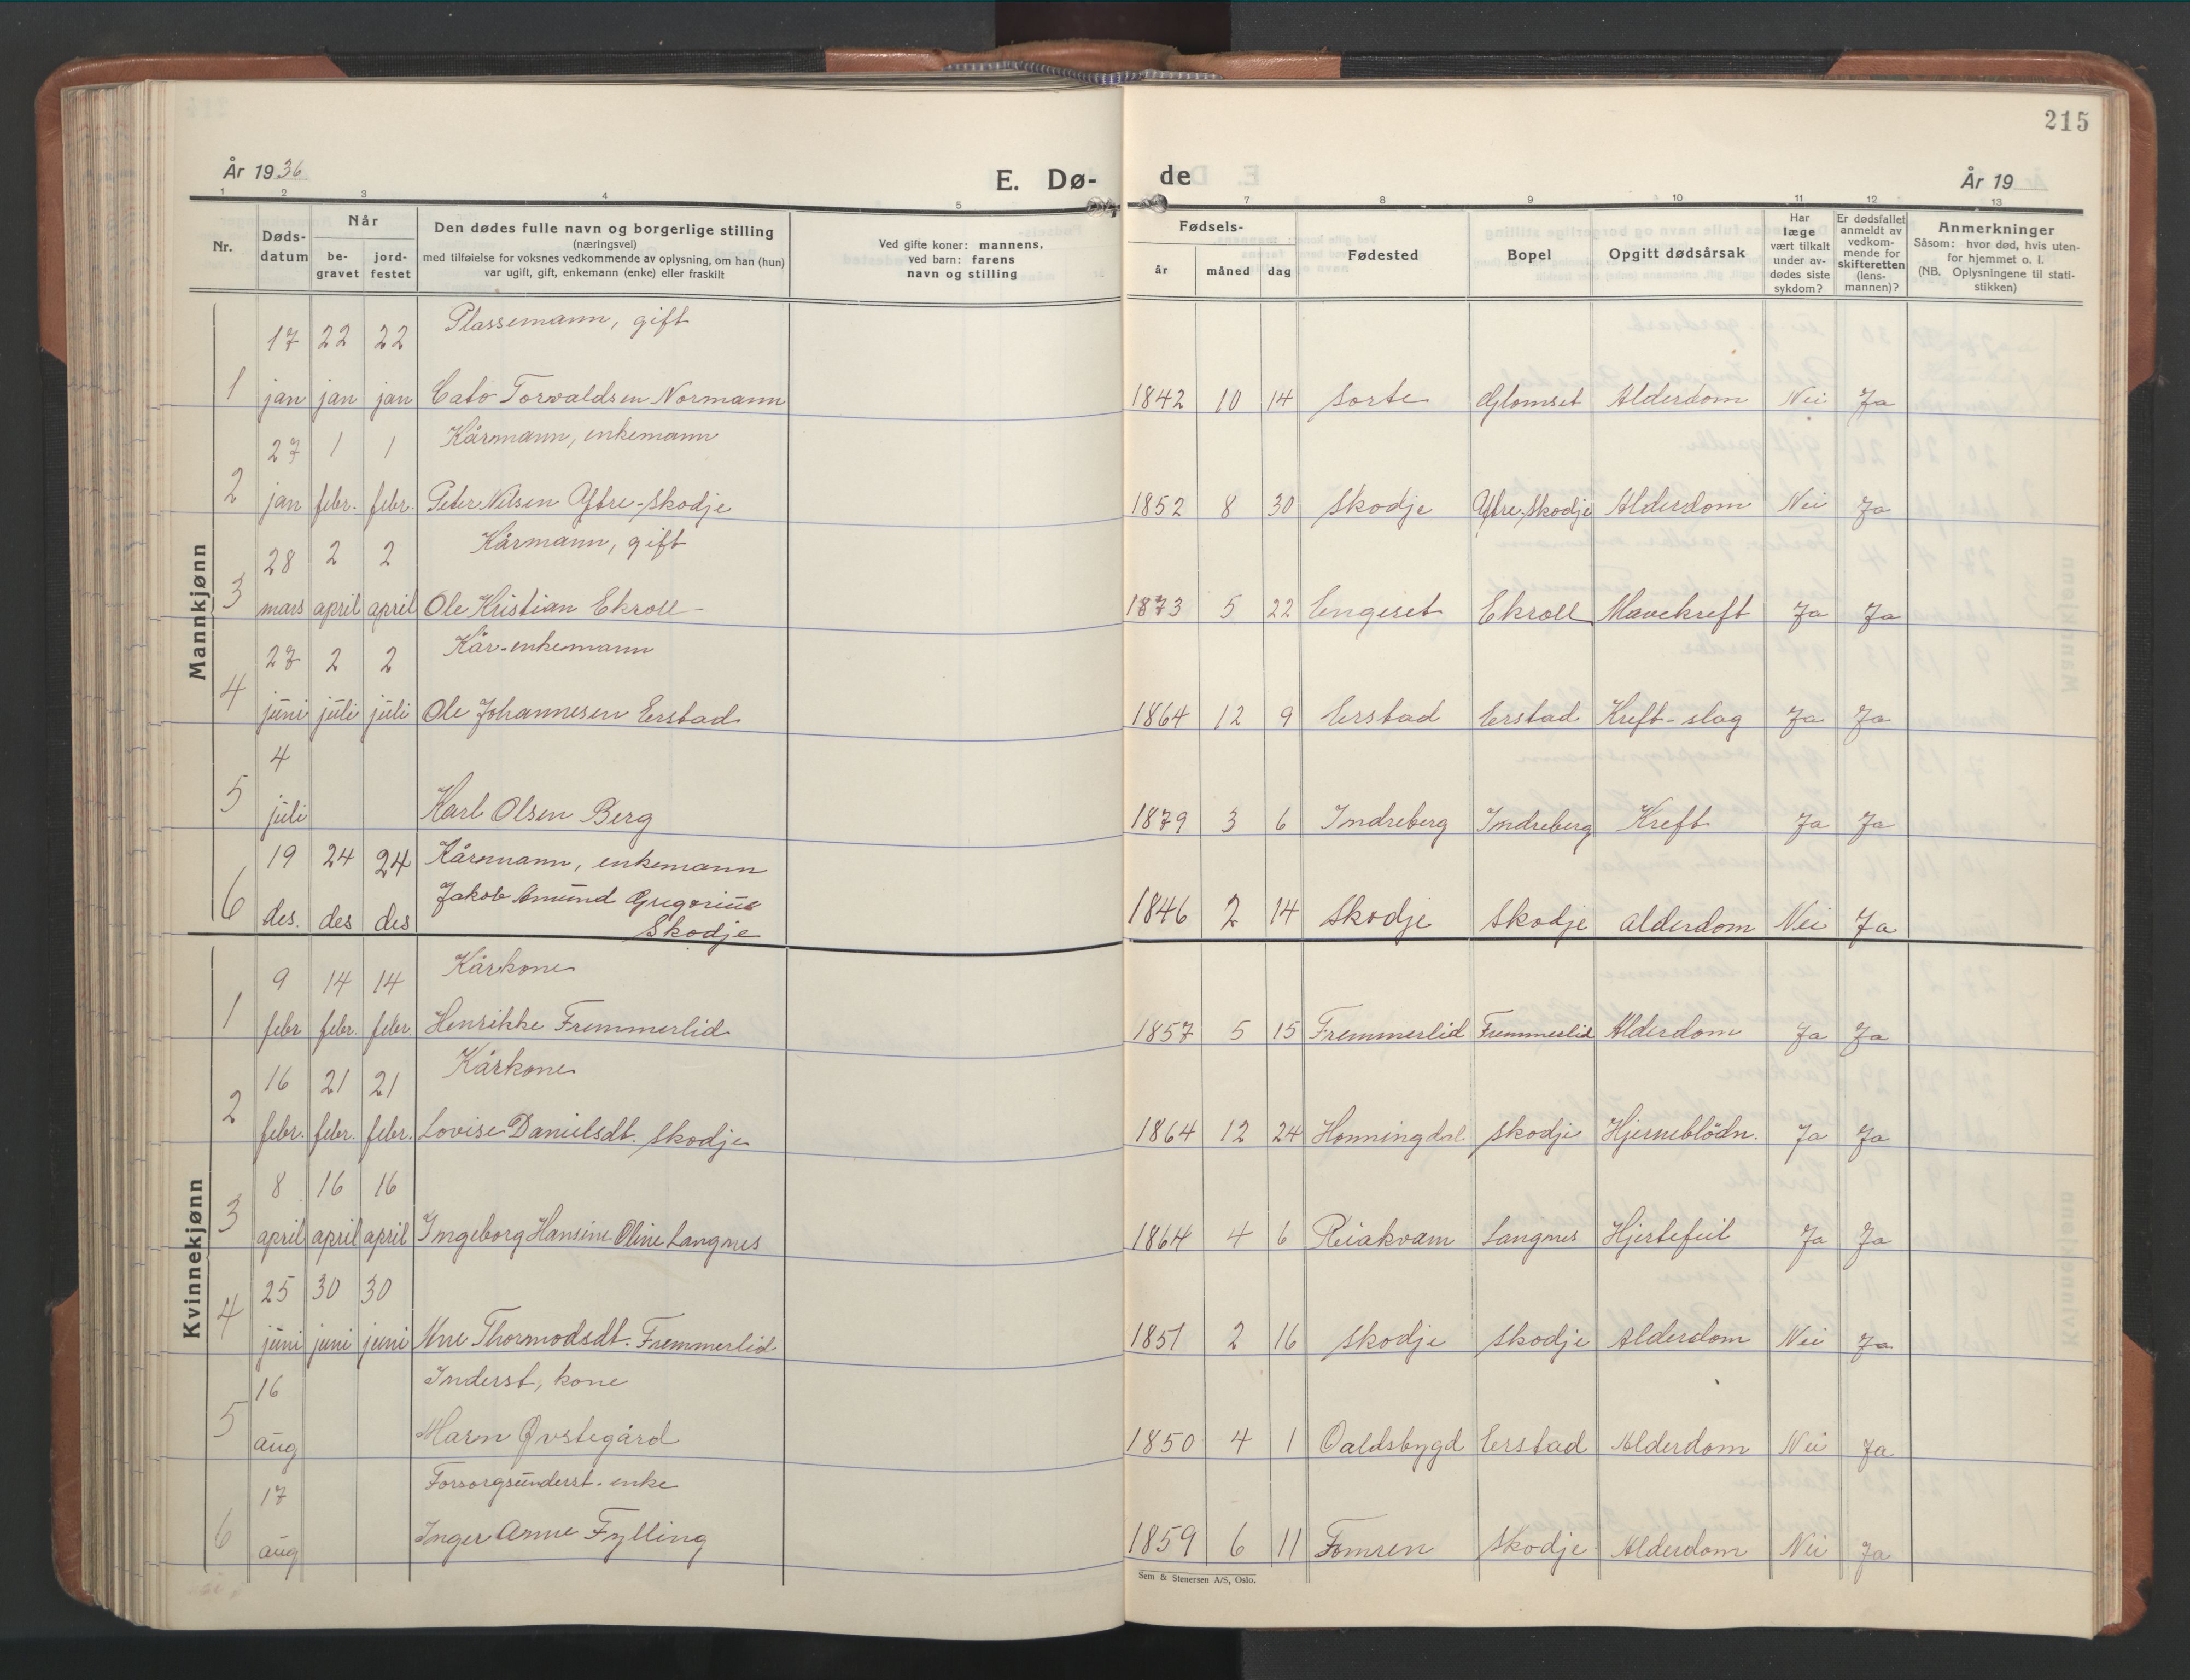 215
År 1936
E. Dø-
de
År 19
1 2 3 4 5
7 8 9 10 11 12 13
Nr.
Døds-
datum
Når
be-
gravet
jord-
festet
Den dødes fulle navn og borgerlige stilling
(næringsvei)
med tilføielse for voksnes vedkommende av oplysning, om han (hun)
var ugift, gift, enkemann (enke) eller fraskilt
Ved gifte koner: mannens,
ved barn: farens
navn og stilling
Fødsels-
år måned dag
Fødested
Bopel
Opgitt dødsårsak
Har
læge
vært tilkalt
under av-
dødes siste
sykdom?
Er dødsfallet
anmeldt av
vedkom-
mende for
skifteretten
(lens-
mannen)?
Anmerkninger
Såsom: hvor død, hvis uten-
for hjemmet o. l.
(NB. Oplysningene til stati-
stikken)
Mannkjønn
17 22 22 Plassemann, gift
1 jan jan jan Cato Torvaldsen Normann 1842 10 14 Sorte Glomset Alderdom Nei Ja
27 1 1 Kårmann, enkemann
2 jan febr. febr. Peter Nilsen Ytre-Skodje 1852 8 30 Skodje Ytre-Skodje Alderdom Nei Ja
28 2 2 Kårmann, gift
3 mars april april Ole Kristian Ekroll 1873 5 22 Engeset Ekroll Mavekreft Ja Ja
27 2 2 Kår-enkemann
4 juni juli juli Ole Johannesen Erstad 1864 12 9 Erstad Erstad Kreft-slag Ja Ja
4
5 juli Karl Olsen Berg 1879 3 6 Indreberg Indreberg Kreft Ja Ja
19 24 24 Kårmann, enkemann
6 des. des des Jakob Amund Gregorius 1846 2 14 Skodje Skodje Alderdom Nei Ja
Skodje
Kvinnekjønn
9 14 14 Kårkone
1 febr febr. febr. Henrikke Fremmerlid 1857 5 15 Fremmerlid Fremmerlid Alderdom Ja Ja
16 21 21 Kårkone
2 febr. febr. febr. Lovise Danielsdt. Skodje 1864 12 24 Honningdal Skodje Hjerneblödn. Ja Ja
8 16 16
3 april april april Ingeborg Hansine Oline Langnes 1864 4 6 Reiakvam Langnes Hjertefeil Ja Ja
25 30 30
4 juni juni juni Ane Thormodsdt. Fremmerlid 1851 2 16 Skodje Skodje Alderdom Nei Ja
16 Inderst, kone
5 aug Maren Øvstegård 1850 4 1 Valdsbygd Erstad Alderdom Nei Ja
17 Forsorgsunderst. enke
6 aug Inger Anne Fylling 1859 6 11 Fomren Skodje Alderdom Nei Ja
Sem & Stenersen A/S, Oslo.